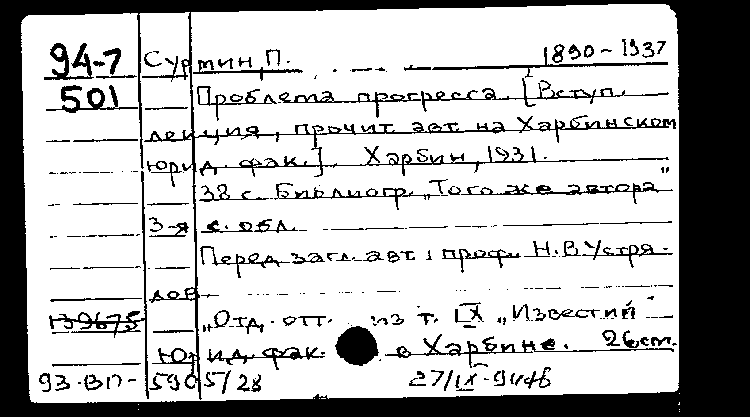 94-7 Сурмин, П. 1890-1937
501 Проблема прогресса. [Вступ.
лекция, прочит. авт. на Харбинском
юрид. фак.]. Харбин, 1931.
38 с. Библиогр. „Того же автора"
3-я с. обл.
Перед загл. авт.: проф. Н.В.Устря-
лов.
139675 „Отд. отт. из т. IX „Известий"
Юрид. фак. в Харбине. 26 cm.
93-ВП-5905/28 27/IX-94